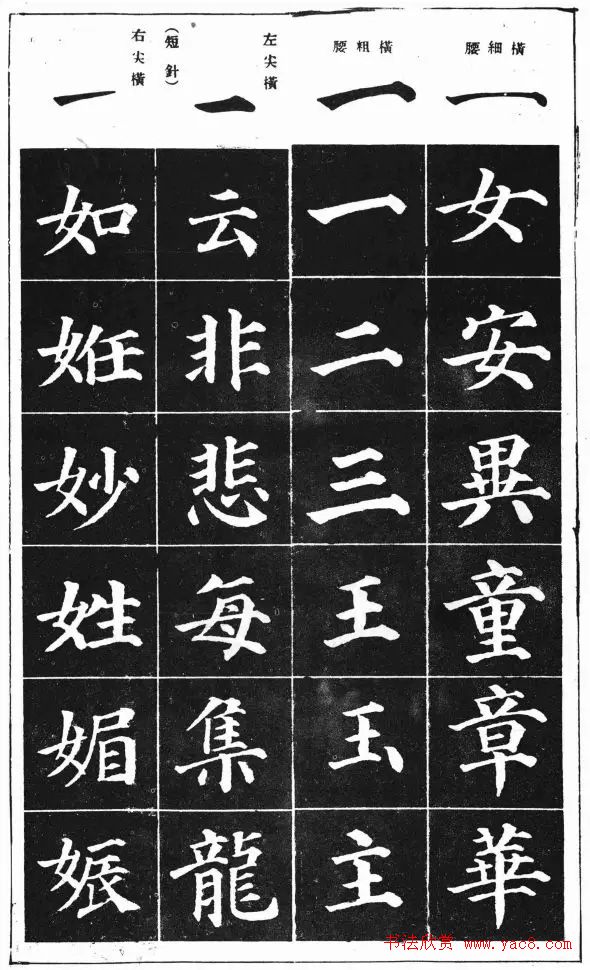 橫細腰
一
女安異童章華
橫粗腰
一
一二三王玉主
左尖橫
(短針)
一
云非悲每集龍
右尖橫
一
如姙妙姓媚娠
书法欣赏 www.yac8.com